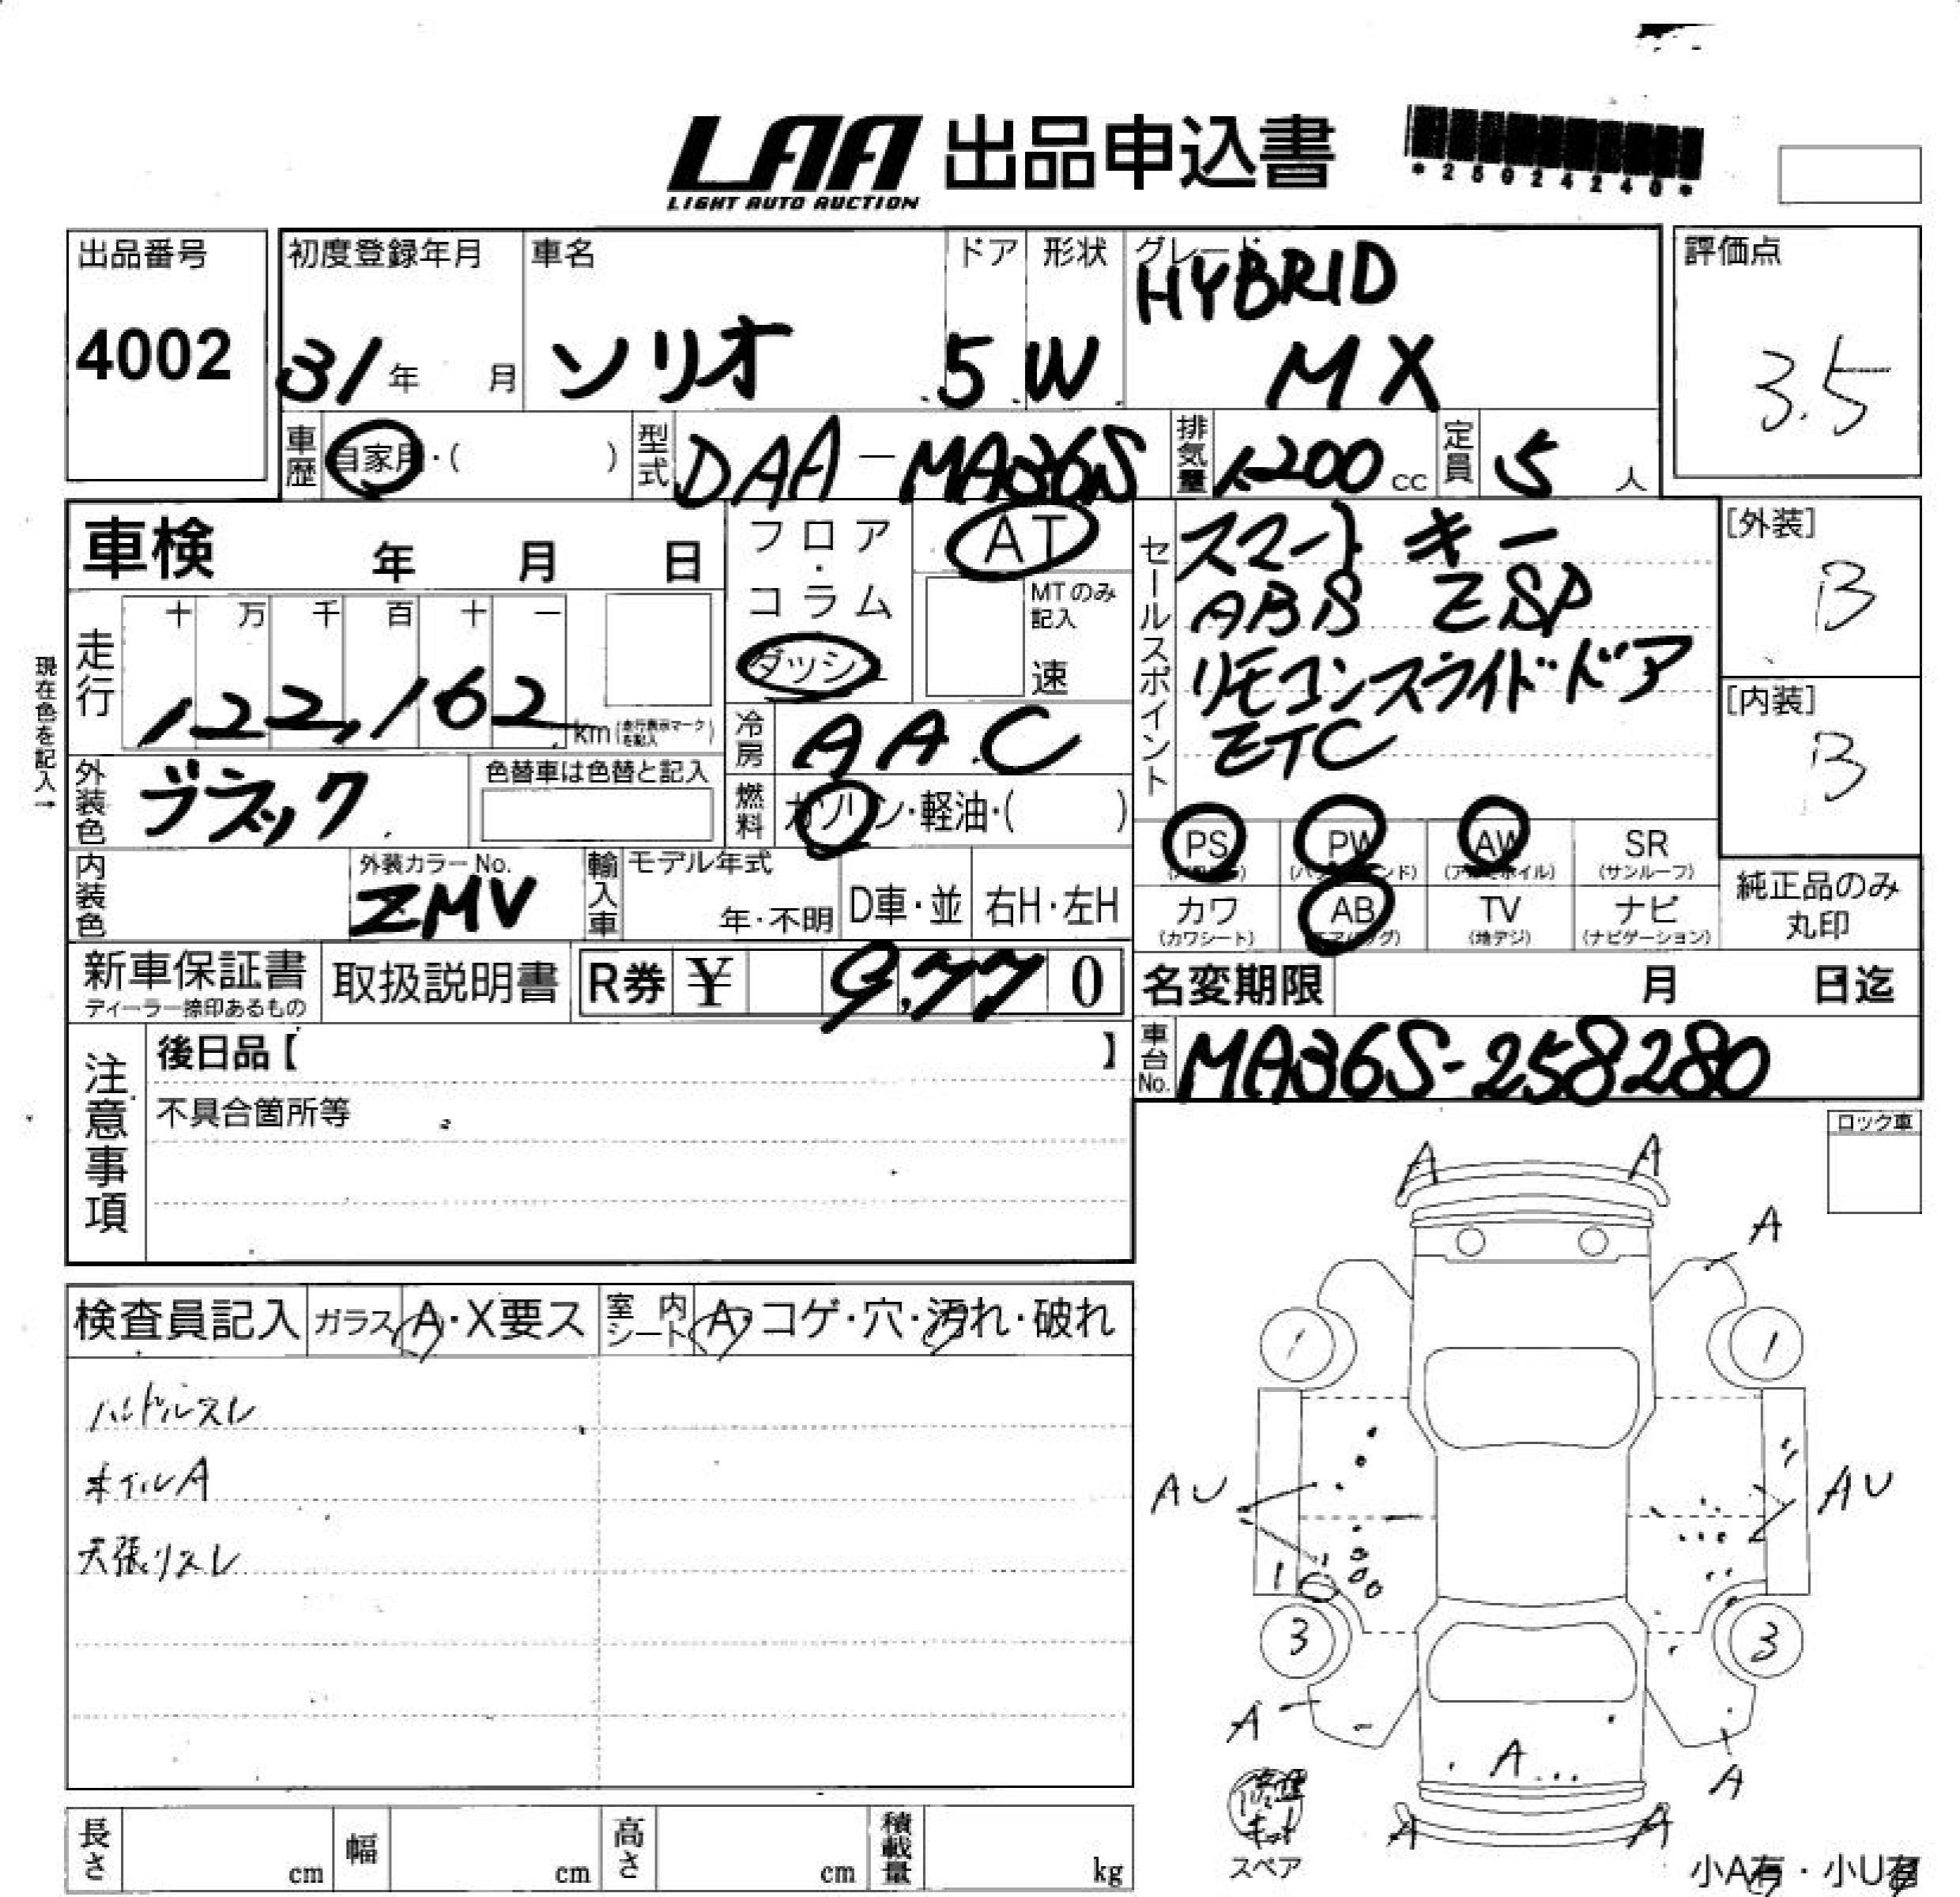 LAA 出品申込書
LIGHT AUTO AUCTION
*25024240*
出品番号
4002
初度登録年月
31年 月
車名
ソリオ
ドア
5
形状
W
グレード
HYBRID
MX
評価点
3.5
車歴 自家用・( )
型式 DAA-MA36S
排気量 1,200 cc
定員 5 人
車検 年 月 日
フロア・コラム
ダッシュ
AT
MTのみ記入
速
現在色を記入→
走行
十 万 千 百 十 一
122,162 km (走行表示マークを記入)
冷房 AAC
外装色 ブラック
色替車は色替と記入
燃料 ガソリン・軽油・( )
セールスポイント
スマートキー
ABS ESP
リモコンスライドドア
ETC
[外装]
B
[内装]
B
PS PW AW SR
(パワステ) (パワーウインド) (アルミホイル) (サンルーフ)
カワ AB TV ナビ
(カワシート) (エアバッグ) (地デジ) (ナビゲーション)
純正品のみ
丸印
内装色
外装カラーNo.
ZMV
輸入車
モデル年式
年・不明
D車・並
右H・左H
新車保証書
ディーラー捺印あるもの
取扱説明書
R券 ¥ 9,770
名変期限 月 日迄
車台No. MA36S-258280
注意事項
後日品【 】
不具合箇所等
ロック車
検査員記入
ガラス A・X要ス
室内シート A・コゲ・穴・汚れ・破れ
ハンドルスレ
ホイルA
天張りスレ
A A
A
1 1
AU AU
1
3 3
A
A
A
A A
修理キット
スペア
小A有・小U有
長さ cm
幅 cm
高さ cm
積載量 kg